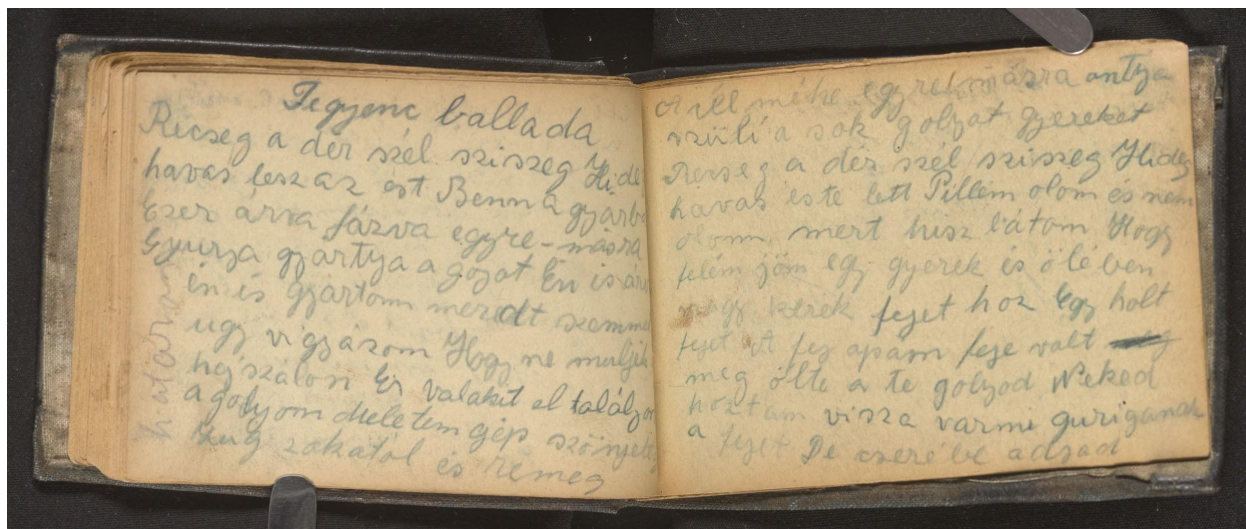 Fegyenc ballada
Recseg a dér szél sziszeg Hide
havas lesz az est Benn a gyárb
Ezer árva fázva egyre-másra
Gyurja gyártya a gojot Én is ár
én is gyártom meredt szemme
ugy vigyázom Hogy ne muljék
hajszálon Ez valakit el találjon
a golyom Mellettem gép szörnyeteg
zug zakatol és remeg
határ
A ill méhe egyre másra ontja
szüli a sok golyot gyereket
Recseg a dér szél sziszeg Hideg
havas este lett Pillem olom és nem
olom mert hisz látom Hogy
felém jöm egy gyerek és ölében
nagy kerek fejet hoz Egy holt
fejet A fej apám feje volt
meg ölte a te golyod Neked
hoztam vissza varmi guriganak
a fejet De cserébe adjad